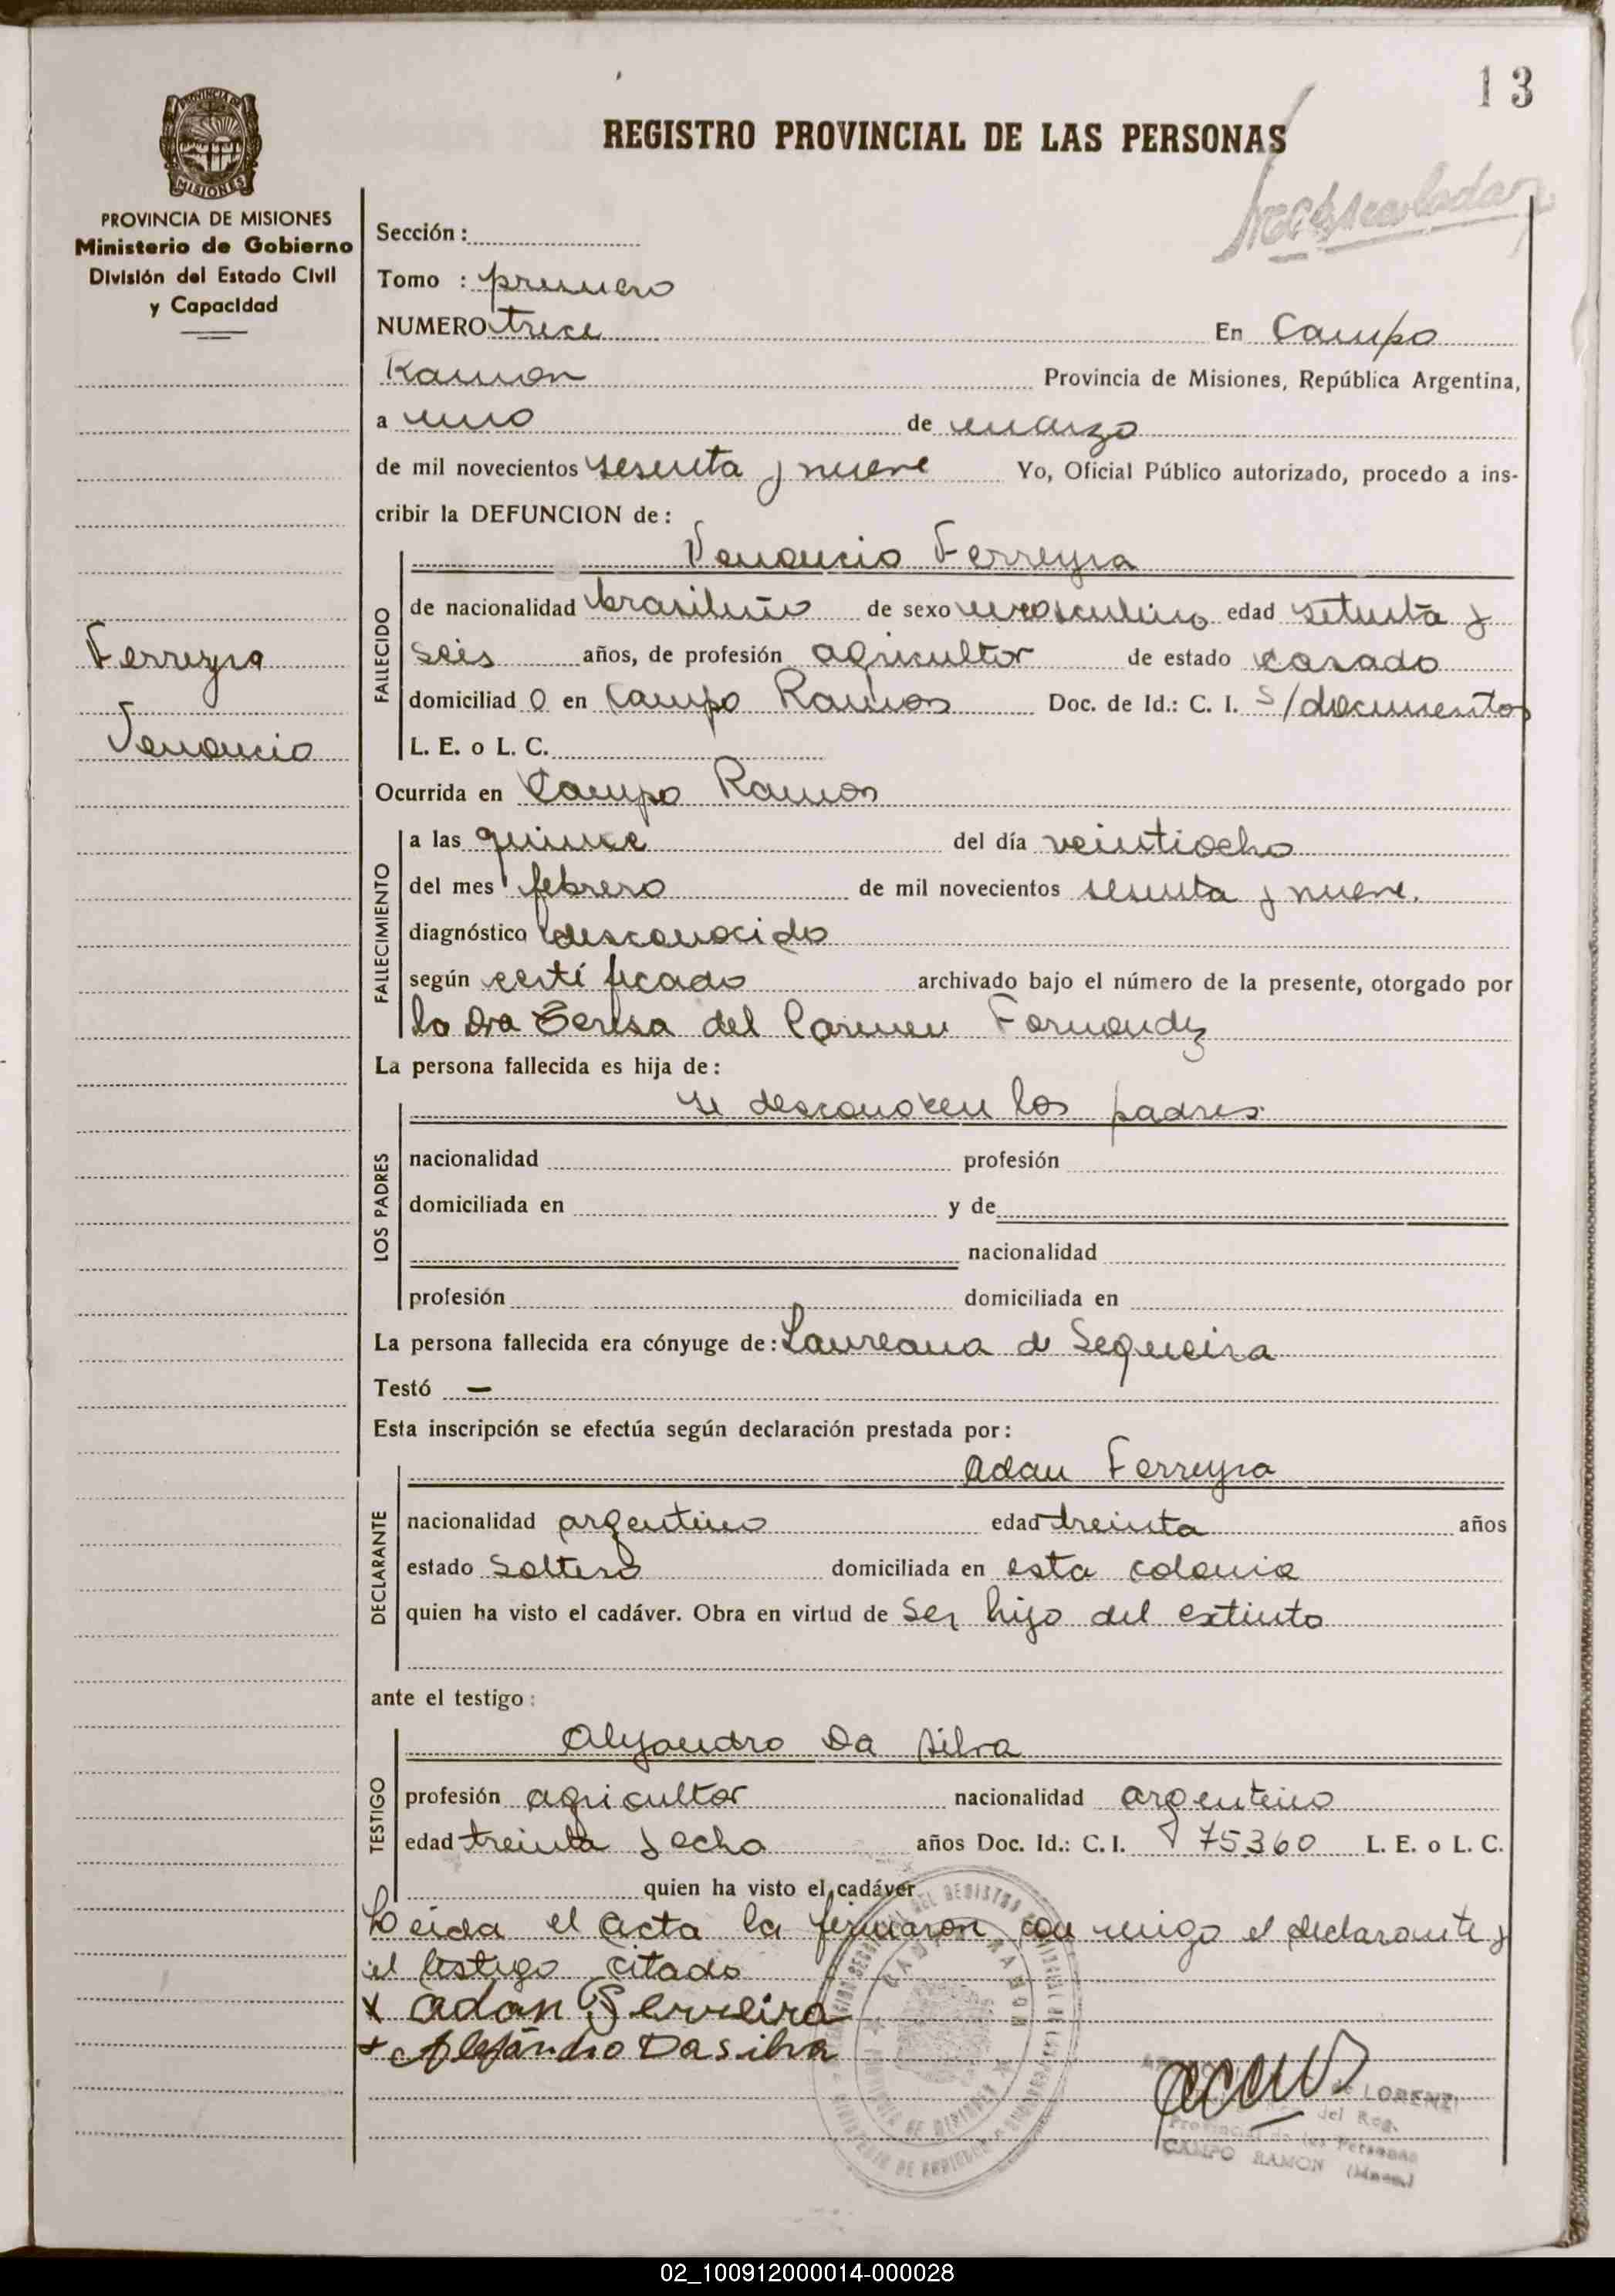 13
REGISTRO PROVINCIAL DE LAS PERSONAS
PROVINCIA DE MISIONES
Ministerio de Gobierno
División del Estado Civil
y Capacidad
Sección :
Tomo : primero
NUMERO trece En Campo
Ramon Provincia de Misiones, República Argentina,
a uno de marzo
de mil novecientos sesenta y nueve Yo, Oficial Público autorizado, procedo a ins-
cribir la DEFUNCION de :
Ferreyra
Venancio
FALLECIDO
Venancio Ferreyra
de nacionalidad brasileño de sexo masculino edad setenta y
seis años, de profesión agricultor de estado casado
domiciliad o en Campo Ramon Doc. de Id.: C. I. s/documentos
L. E. o L. C.
Ocurrida en Campo Ramon
FALLECIMIENTO
a las quince del día veintiocho
del mes febrero de mil novecientos sesenta y nueve.
diagnóstico desconocido
según certificado archivado bajo el número de la presente, otorgado por
la Dra Teresa del Carmen Fernandez
La persona fallecida es hija de :
LOS PADRES
se desconocen los padres
nacionalidad profesión
domiciliada en y de
nacionalidad
profesión domiciliada en
La persona fallecida era cónyuge de : Laureana de Sequeira
Testó —
Esta inscripción se efectúa según declaración prestada por :
DECLARANTE
Adan Ferreyra
nacionalidad argentino edad treinta años
estado soltero domiciliada en esta colonia
quien ha visto el cadáver. Obra en virtud de ser hijo del extinto
ante el testigo :
TESTIGO
Alejandro Da Silva
profesión agricultor nacionalidad argentino
edad treinta y ocho años Doc. Id.: C. I. 75360 L. E. o L. C.
quien ha visto el cadáver
Leida el acta la firmaron con migo el declarante y
el testigo citado
x Adan Ferreira
x Alejandro Dasilva
CAMPO RAMON
PROVINCIA DE MISIONES
LORENZI
del Reg.
Provincial de las Personas
CAMPO RAMON (Mnes.)
02_100912000014-000028